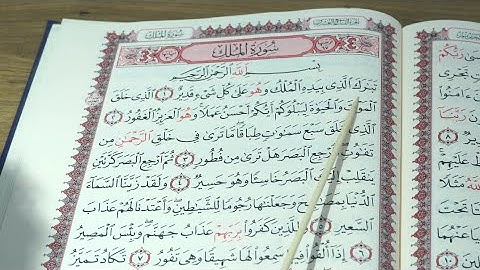 سُورَةُ الْمُلْكِ
بِسْمِ اللَّهِ الرَّحْمَٰنِ الرَّحِيمِ
تَبَٰرَكَ ٱلَّذِى بِيَدِهِ ٱلْمُلْكُ وَهُوَ عَلَىٰ كُلِّ شَىْءٍ قَدِيرٌ ١ ٱلَّذِى خَلَقَ
ٱلْمَوْتَ وَٱلْحَيَوٰةَ لِيَبْلُوَكُمْ أَيُّكُمْ أَحْسَنُ عَمَلًا وَهُوَ ٱلْعَزِيزُ ٱلْغَفُورُ ٢
ٱلَّذِى خَلَقَ سَبْعَ سَمَٰوَٰتٍ طِبَاقًا مَّا تَرَىٰ فِى خَلْقِ ٱلرَّحْمَٰنِ مِن
تَفَٰوُتٍ فَٱرْجِعِ ٱلْبَصَرَ هَلْ تَرَىٰ مِن فُطُورٍ ٣ ثُمَّ ٱرْجِعِ ٱلْبَصَرَ
يَنقَلِبْ إِلَيْكَ ٱلْبَصَرُ خَاسِئًا وَهُوَ حَسِيرٌ ٤ وَلَقَدْ زَيَّنَّا ٱلسَّمَآءَ
ٱلدُّنْيَا بِمَصَٰبِيحَ وَجَعَلْنَٰهَا رُجُومًا لِّلشَّيَٰطِينِ وَأَعْتَدْنَا لَهُمْ عَذَابَ
ٱلسَّعِيرِ ٥ وَلِلَّذِينَ كَفَرُوا۟ بِرَبِّهِمْ عَذَابُ جَهَنَّمَ وَبِئْسَ ٱلْمَصِيرُ
٦ إِذَآ أُلْقُوا۟ فِيهَا سَمِعُوا۟ لَهَا شَهِيقًا وَهِىَ تَفُورُ ٧ تَكَادُ تَمَيَّزُ
رَبُّكُمْ
تَجْرِى
ءَامَنُوا۟
رَبَّنَا
عَلَيْهِمْ
ٱللَّهُ
مَثَلًا
تَحْتَ